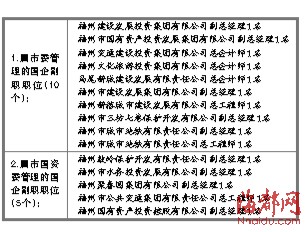 福州建设发展投资集团有限公司副总经理1名
福州市国有资产投资发展集团有限公司副总经理1名
福州交通建设投资集团有限公司总会计师1名
福州文化旅游投资集团有限公司总会计师1名
马尾船政建设发展有限责任公司总会计师1名
福州新榕城市建设发展有限公司副总经理1名
福州新榕城市建设发展有限公司总工程师1名
福州市三坊七巷保护开发有限公司副总经理1名
福州市城市地铁有限责任公司副总经理1名
福州市城市地铁有限责任公司总工程师1名
1.属市委管
理的国企副
职职位(10
个):
福州鼓岭保护开发有限责任公司副总经理1名
福州市水务投资发展有限公司副总经理1名
福州聚春园集团有限公司副总经理1名
福州市公共交通集团有限责任公司总工程师1名
福州国有资产投资控股有限公司副总经理1名
2.属市国资
委管理的国
企副职职位
(5个):
海都网